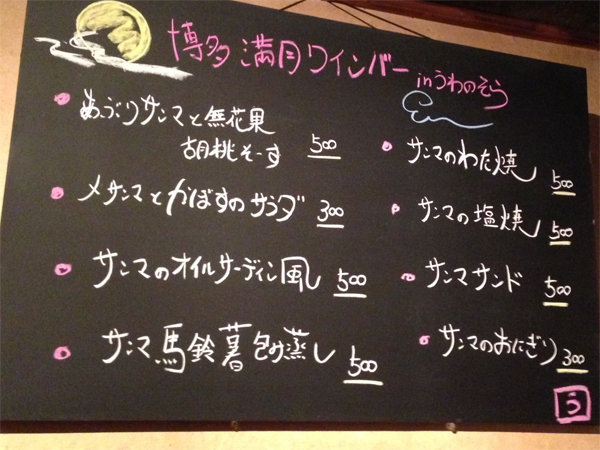 博多 満月ワインバー inうわのそら
あぶりサンマと無花果
胡桃そーす 500
〆サンマとかぼすのサラダ 300
サンマのオイルサーディン風 500
サンマ馬鈴薯包み蒸し 500
サンマのわた焼 500
サンマの塩焼 500
サンマサンド 500
サンマのおにぎり 300
う